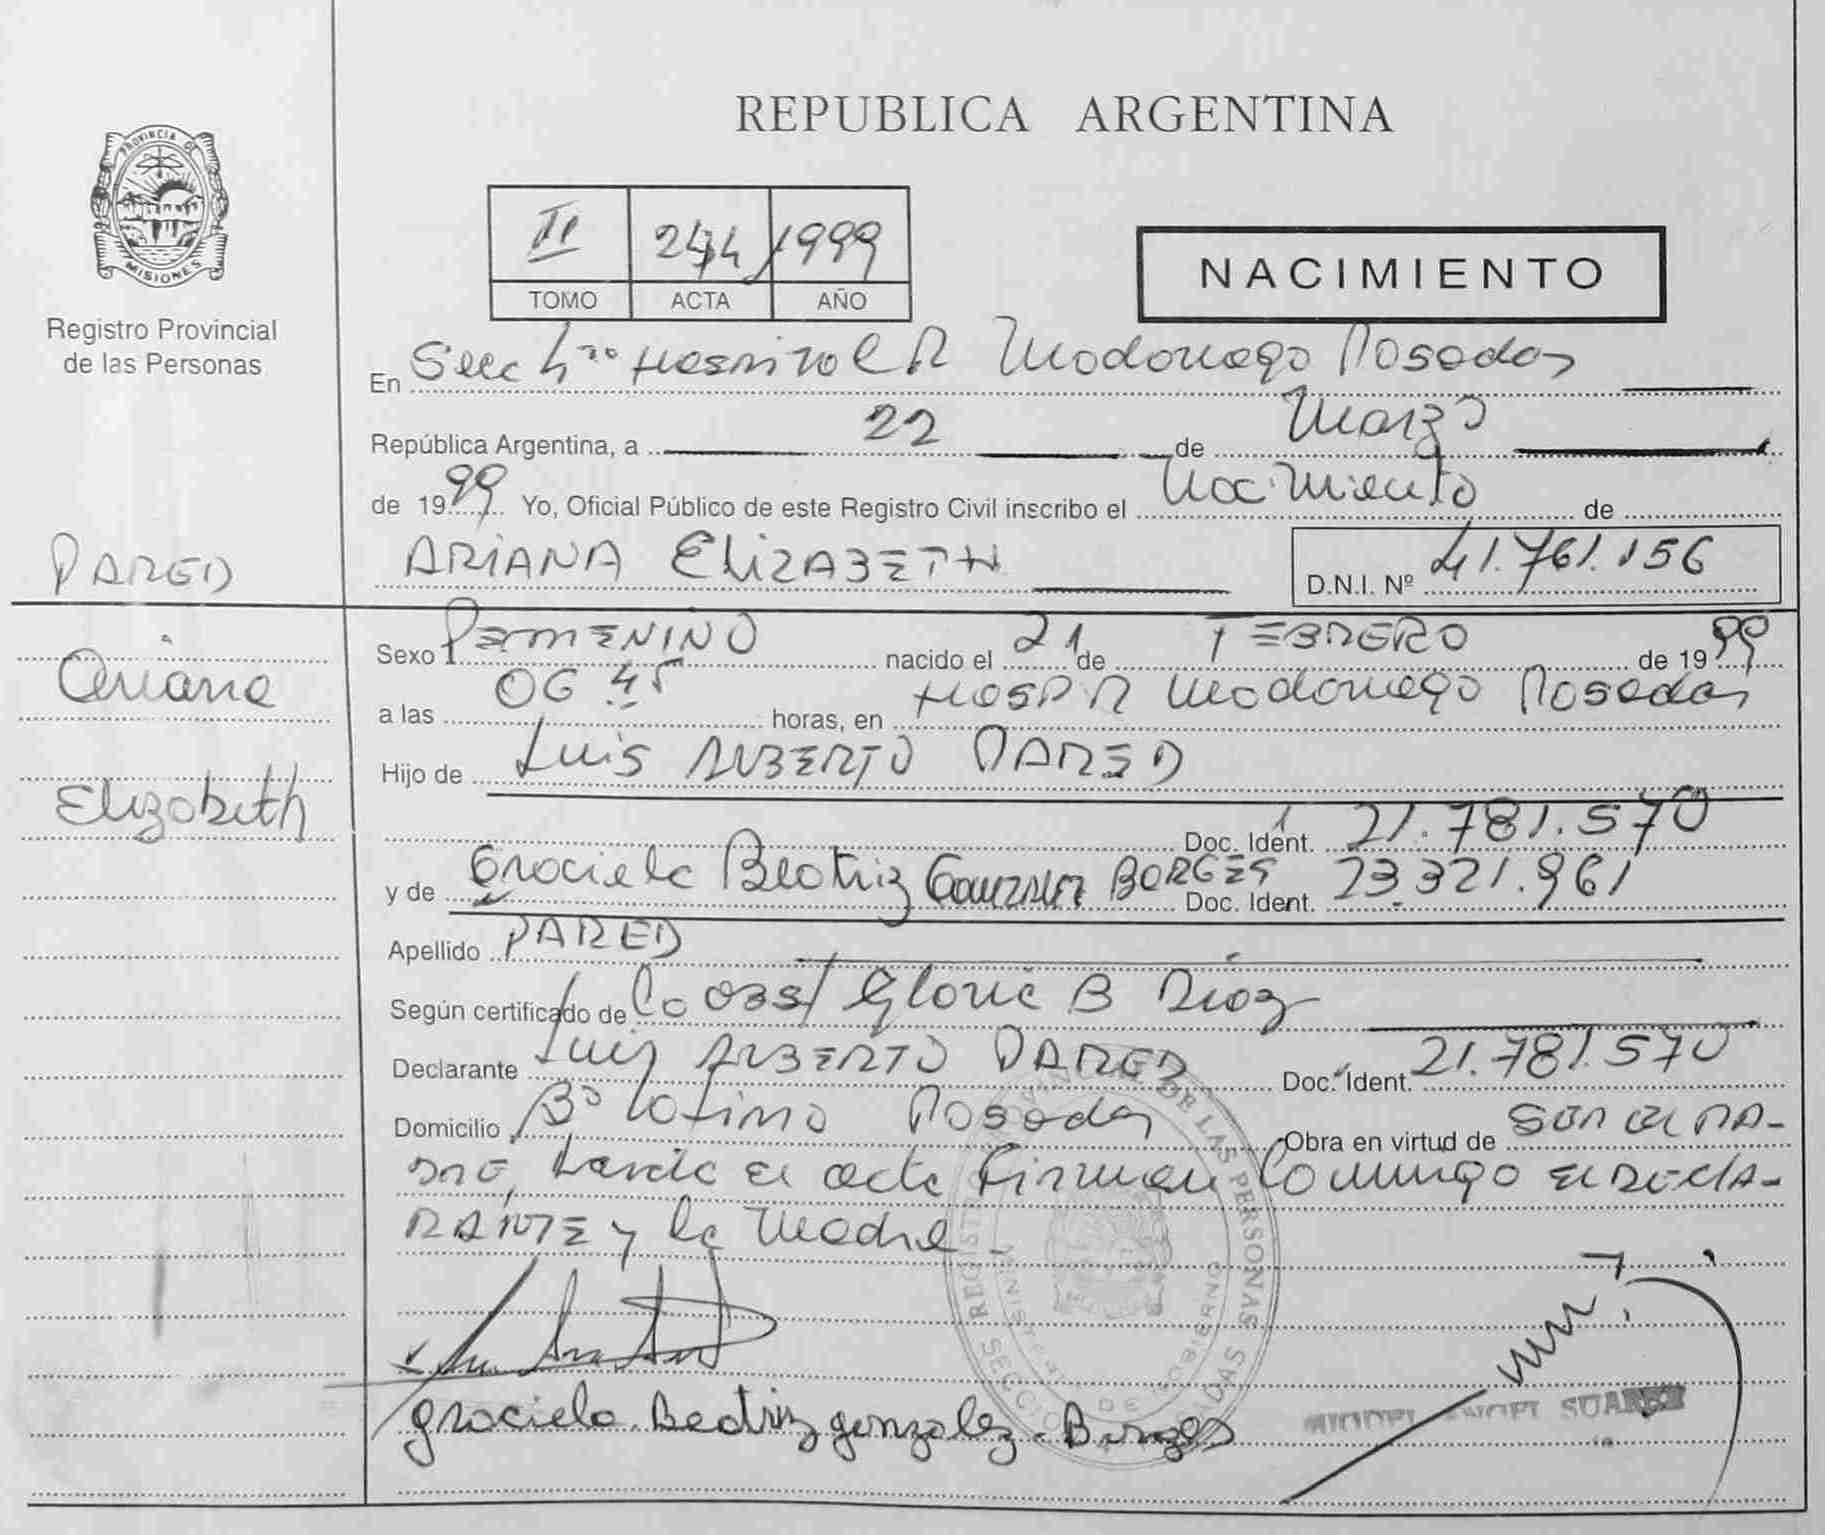 REPUBLICA ARGENTINA
PROVINCIA DE
MISIONES
Registro Provincial
de las Personas
II 244 1999
TOMO ACTA AÑO
NACIMIENTO
En Secc 4ta Hospital R Madariaga Posadas
República Argentina, a 22 de Marzo
de 1999 Yo, Oficial Público de este Registro Civil inscribo el Nacimiento de
PARED
ARIANA ELIZABETH D.N.I. Nº 41.761.156
Ariana
Elizabeth
Sexo FEMENINO nacido el 21 de FEBRERO de 1999
a las 06 45 horas, en HOSP R Madariaga Posadas
Hijo de Luis ALBERTO PARED
Doc. Ident. 21.781.570
y de Graciela Beatriz GONZALEZ BORGES Doc. Ident. 23.321.961
Apellido PARED
Según certificado de Obst Gloria B Diaz
Declarante Luis ALBERTO PARED Doc. Ident. 21.781.570
Domicilio Bº Latino Posadas Obra en virtud de SER EL PA-
DRE, Leida el acta Firman Conmigo El DECLA-
RANTE y la Madre
Graciela Beatriz gonzalez Borges
MIGUEL ANGEL SUAREZ
DE LAS PERSONAS
MINISTERIO DE GOBIERNO